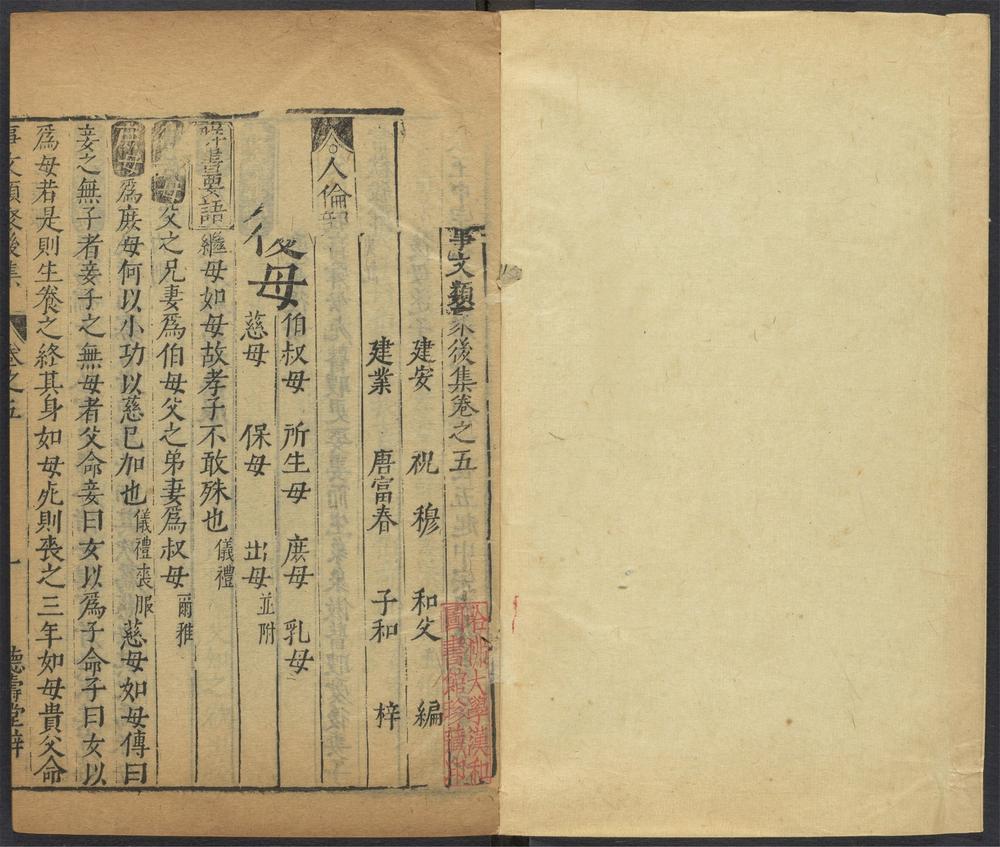 事文類聚後集卷之五
建安 祝 穆 和父 編
建業 唐富春 子和 梓
人倫部
後母
伯叔母 所生母 庶母 乳母
慈母 保母 出母並附
群書要語 繼母如母故孝子不敢殊也儀禮
父之兄妻爲伯母父之弟妻爲叔母爾雅
爲庶母何以小功以慈已加也儀禮喪服慈母如母傳曰
妾之無子者妾子之無母者父命妾曰女以爲子命子曰女以
爲母者是則生養之終其身如母死則喪之三年如母貴父命
事文類聚後集 卷之五 一 德壽堂梓
哈佛大學漢和
圖書館珍藏印